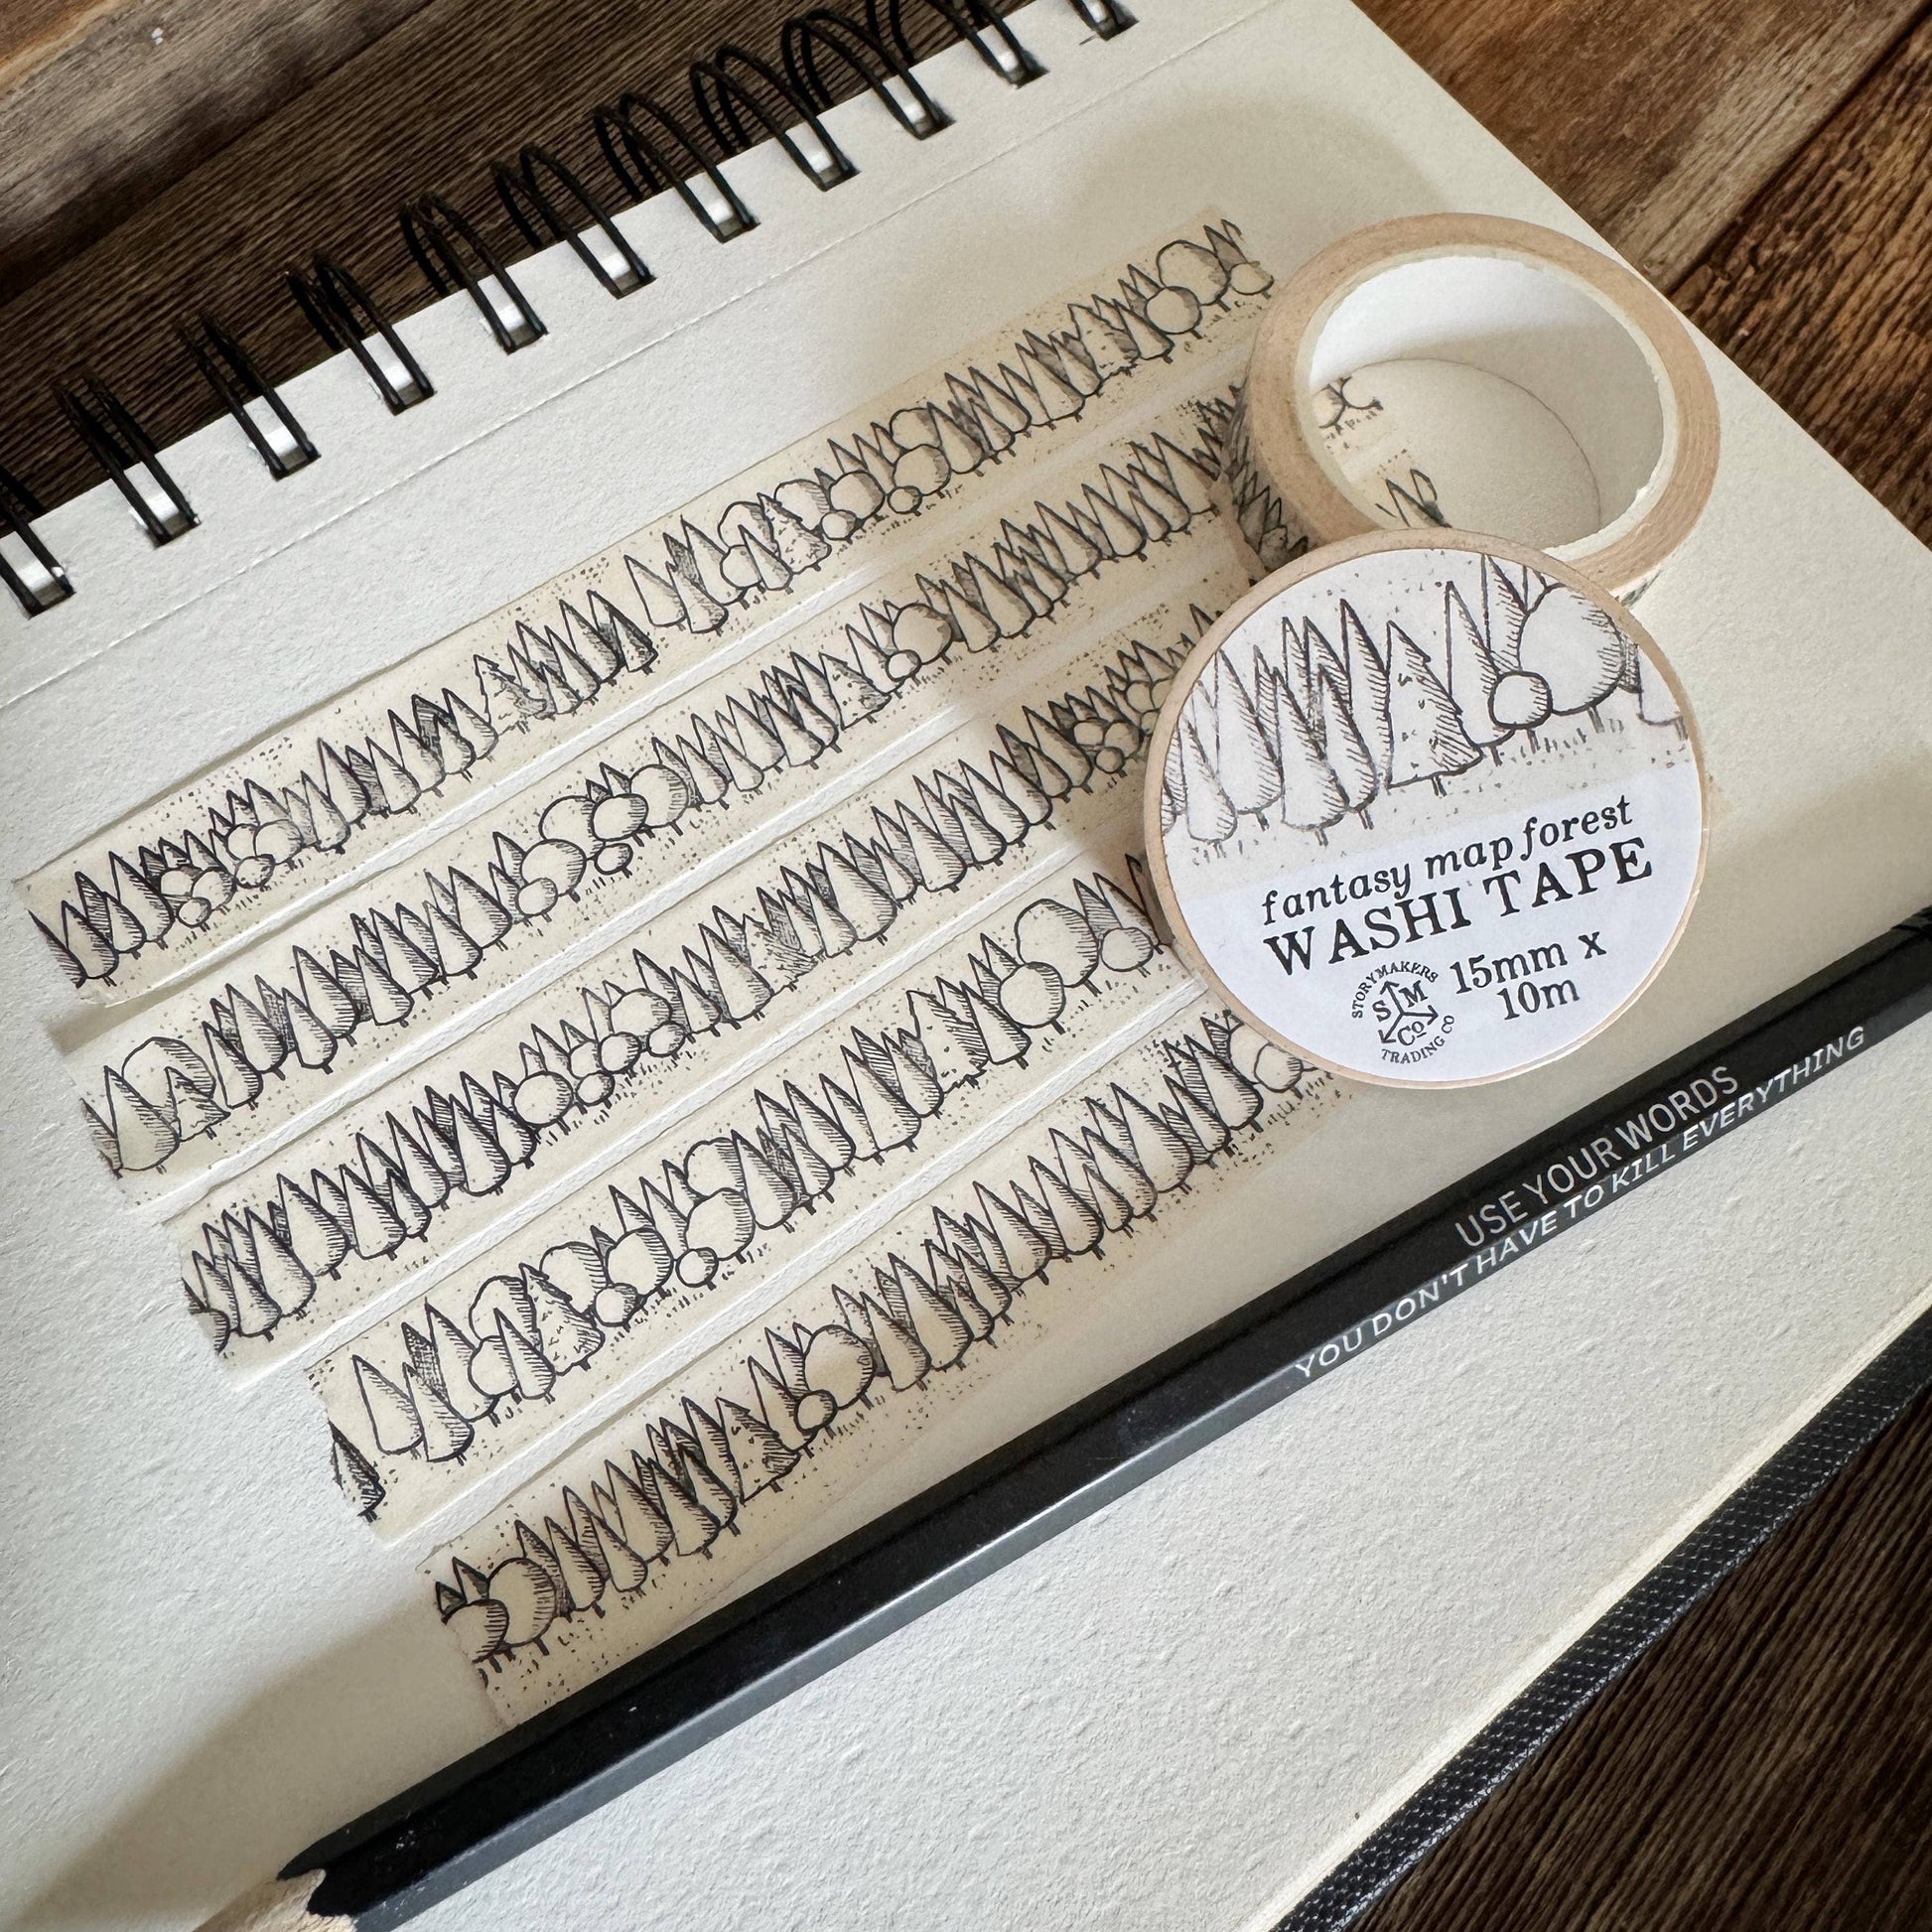 fantasy map forest
WASHI TAPE
15mm x
10m
STORYMAKERS
S M
Co
TRADING CO
USE YOUR WORDS
YOU DON'T HAVE TO KILL EVERYTHING